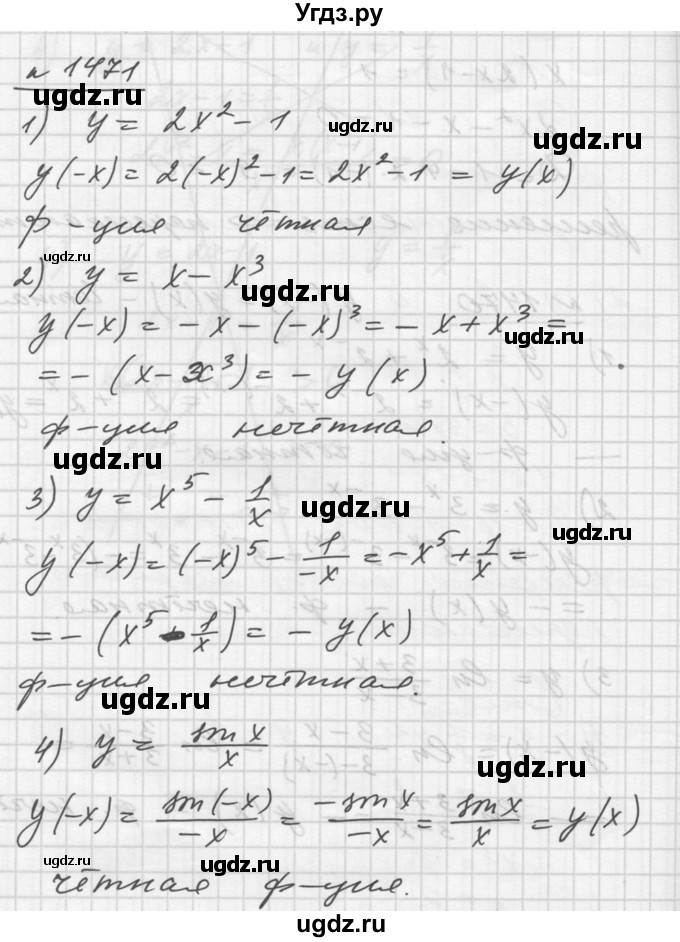 Угдз.ру
n 1471
ugdz.ru
1) y = 2x² - 1
ugdz.ru
y(-x) = 2(-x)² - 1 = 2x² - 1 = y(x)
ф-ция чётная
ugdz.ru
2) y = x - x³
ugdz.ru
y(-x) = - x - (-x)³ = - x + x³ =
ugdz.ru
= - (x - x³) = - y(x).
ф-ция нечётная.
ugdz.ru
3) y = x⁵ - 1/x
ugdz.ru
ugdz.ru
y(-x) = (-x)⁵ - 1/-x = -x⁵ + 1/x =
= - (x⁵ - 1/x) = - y(x)
ф-ция нечётная.
ugdz.ru
4) y = sin x/x
ugdz.ru
y(-x) = sin(-x)/-x = -sin x/-x = sin x/x = y(x)
ugdz.ru
ugdz.ru
ugdz.ru
чётная ф-ция.
ugdz.ru